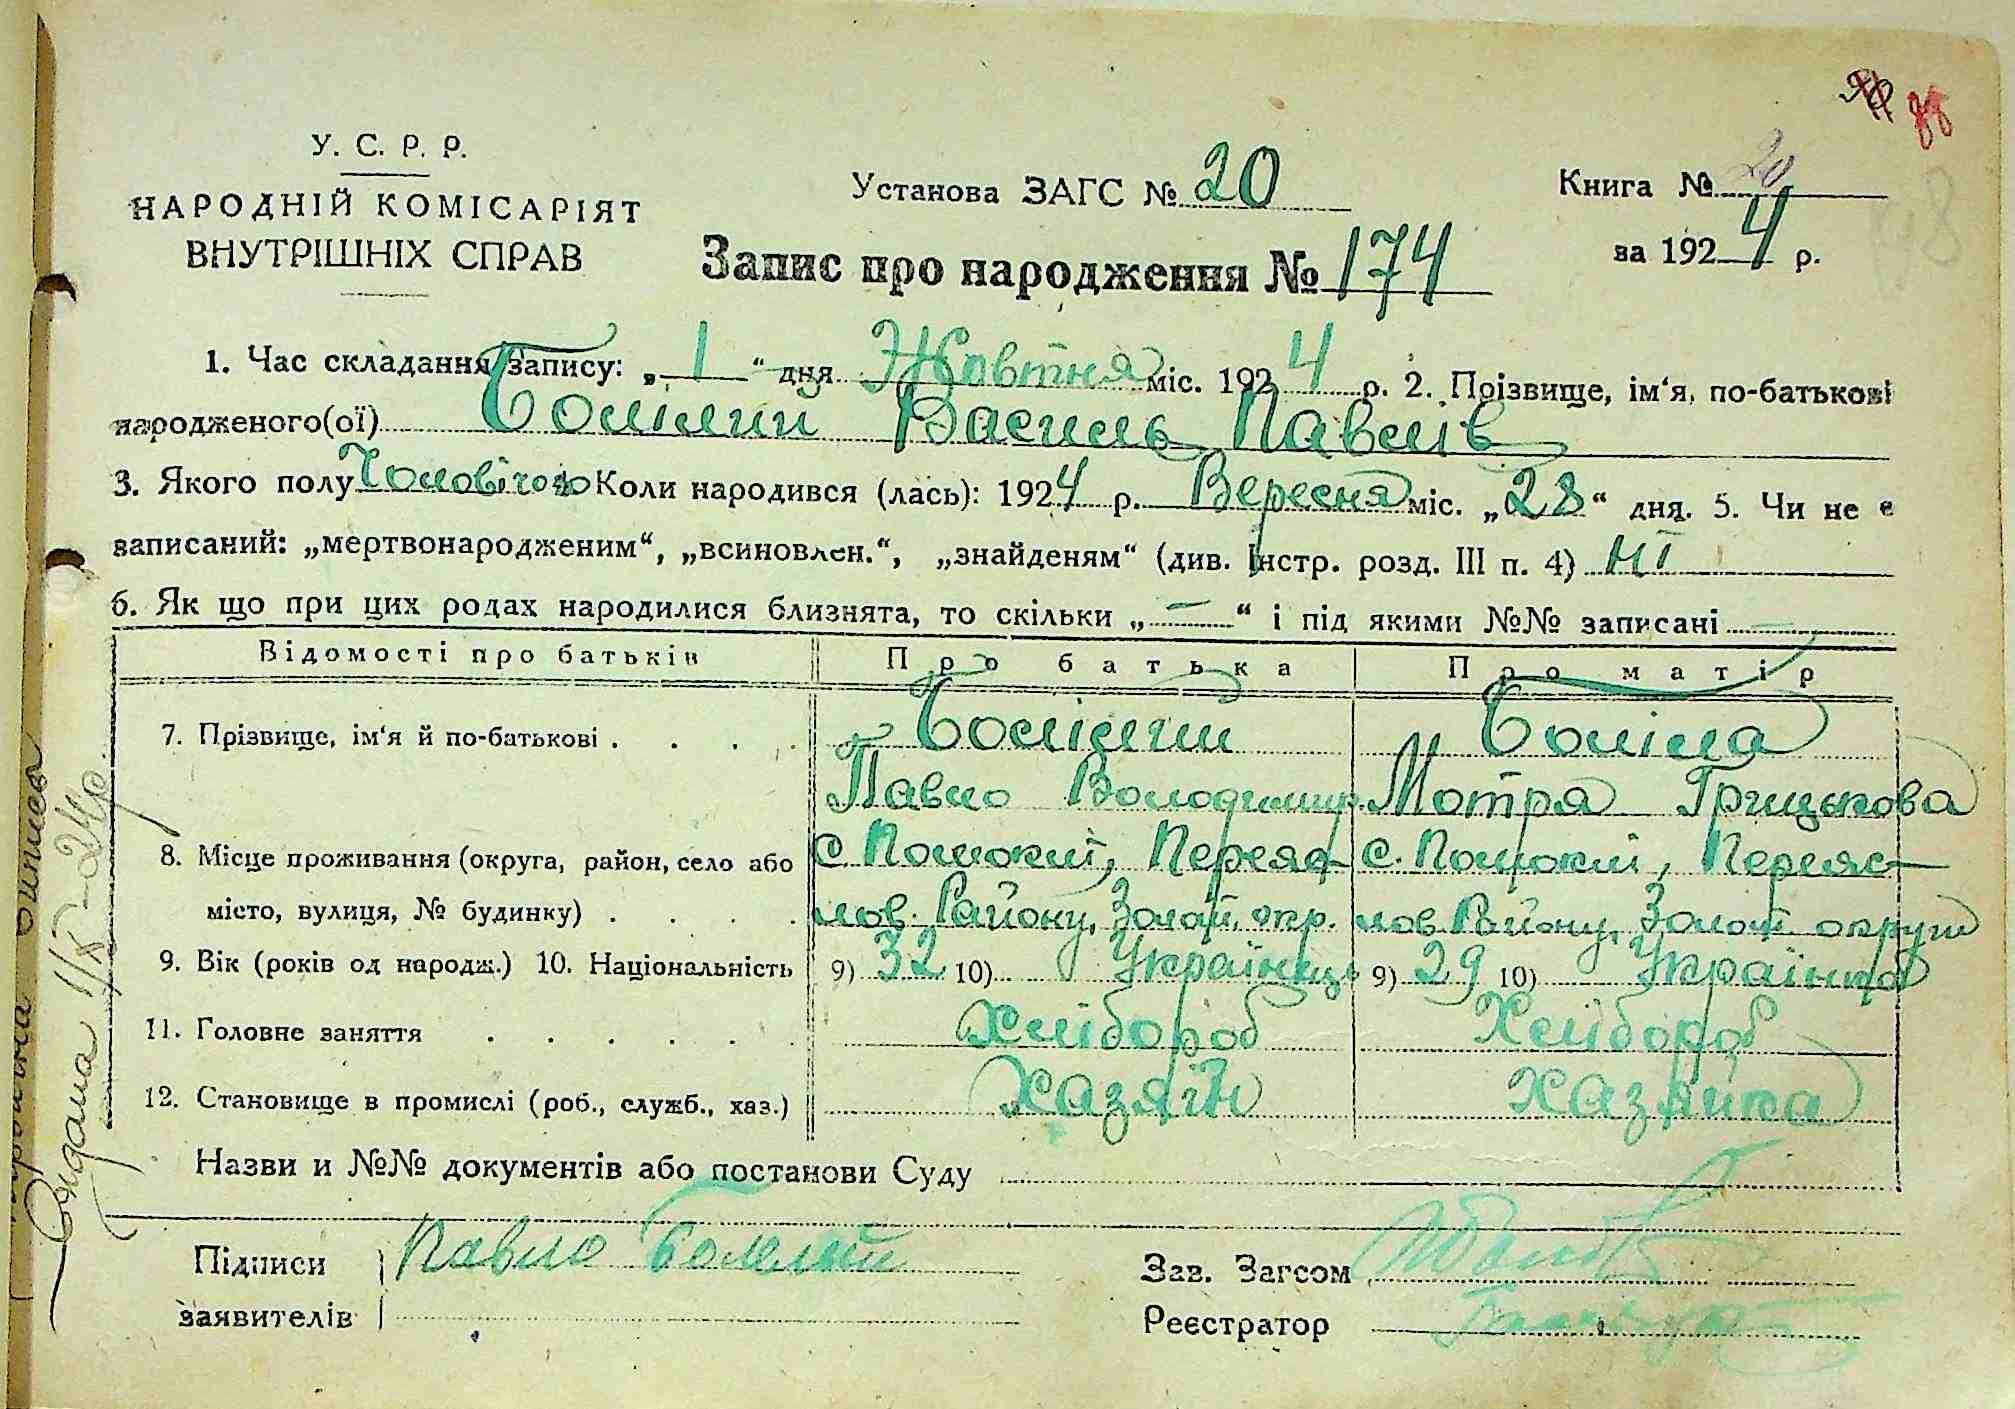 88
У. С. Р. Р.
НАРОДНІЙ КОМІСАРІЯТ
ВНУТРІШНІХ СПРАВ
Установа ЗАГС № 20
Книга № 20
за 1924 р.
Запис про народження № 174
1. Час складання запису: „ 1 “ дня Жовтня міс. 1924 р. 2. Прізвище, ім‘я, по-батькові
народженого(ої) Болілий Василь Павлів
3. Якого полу Чоловічого Коли народився (лась): 1924 р. Вересня міс. „28“ дня. 5. Чи не є
записаний: „мертвонародженим“, „всиновлен.“, „знайденям“ (див. Інстр. розд. III п. 4) Ні
6. Як що при цих родах народилися близнята, то скільки „—“ і під якими №№ записані —
Відомості про батьків Про батька Про матір
7. Прізвище, ім‘я й по-батькові . . . . Болілий Боліла
Павло Володимир. Мотря Грицькова
8. Місце проживання (округа, район, село або с. Пошокий, Переяс- с. Пошокий, Переяс-
місто, вулиця, № будинку) . . . . лов. Району, Золот. окр. лов Району, Золот округи
9. Вік (років од народж.) 10. Національність 9) 32 10) Українець 9) 29 10) Українка
11. Головне заняття . . . . . . Хлібороб Хлібороб
12. Становище в промислі (роб., служб., хаз.) Хазяїн Хазяйка
Назви и №№ документів або постанови Суду
Підписи Павло Болілий
заявителів
Зав. Загсом
Реєстратор
Видана 1/X-24р.